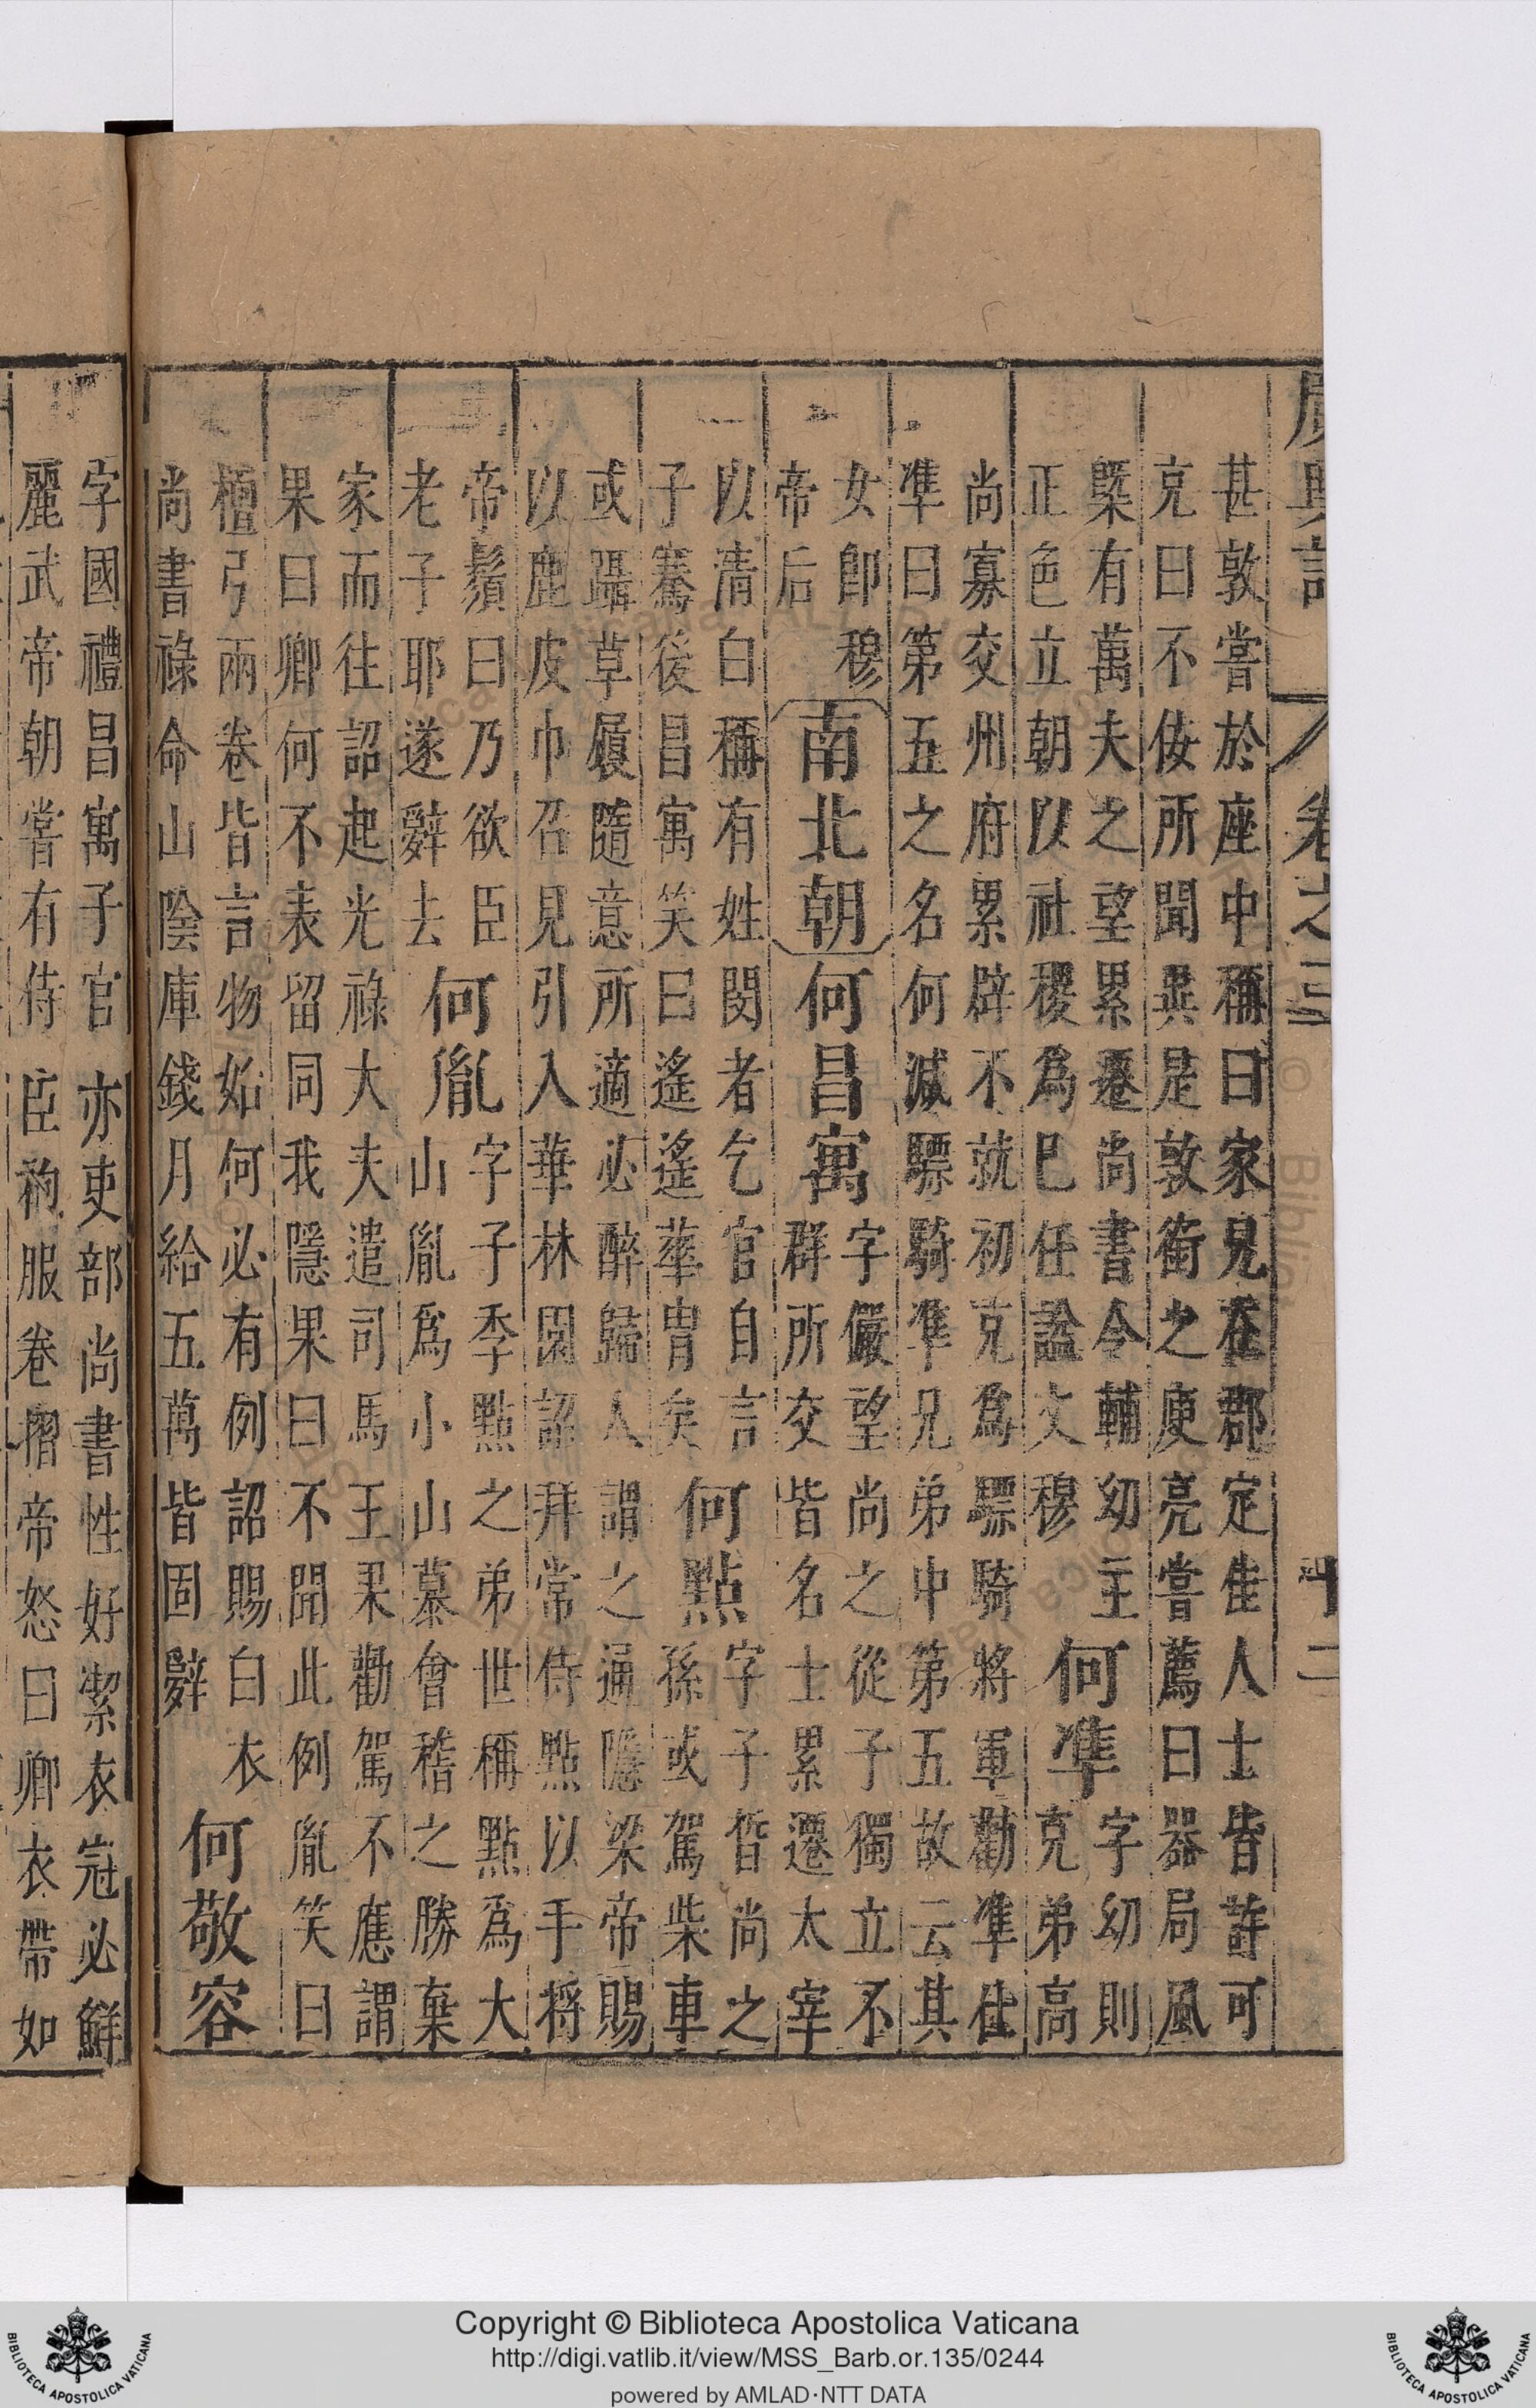 廣輿記 卷之三 十二
甚敦嘗於座中稱曰家兄在郡定佳人士皆許可
克曰不佞所聞異是敦銜之庾亮嘗薦曰器局風
槩有萬夫之望累遷尚書令輔幼主
正色立朝以社稷爲已任諡文穆
何準
字幼則
克弟高
尚寡交州府累辟不就初克爲驃騎將軍勸準仕
準曰第五之名何減驃騎準兄弟中第五故云其
女卽穆
帝后
南北朝
何昌寓
字儼望尚之從子獨立不
群所交皆名士累遷太宰
以清白稱有姓閔者乞官自言
子騫後昌寓笑曰遙遙華胄矣
何點
字子晳尚之
孫或駕柴車
或躡草屩隨意所適必醉歸人謂之通隱梁帝賜
以鹿皮巾召見引入華林園詔拜常侍點以手捋
帝鬚曰乃欲臣
老子耶遂辭去
何胤
字子季點之弟世稱點爲大
山胤爲小山慕會稽之勝棄
家而往詔起光祿大夫遣司馬王果勸駕不應謂
果曰卿何不表留同我隱果曰不聞此例胤笑曰
檀弓兩卷皆言物始何必有例詔賜白衣
尚書祿命山陰庫錢月給五萬皆固辭
何敬容
字國禮昌寓子官亦吏部尚書性好潔衣冠必鮮
麗武帝朝嘗有侍臣袀服卷摺帝怒曰卿衣帶如
Copyright © Biblioteca Apostolica Vaticana
http://digi.vatlib.it/view/MSS_Barb.or.135/0244
powered by AMLAD·NTT DATA
BIBLIOTECA APOSTOLICA VATICANA
BIBLIOTECA APOSTOLICA VATICANA